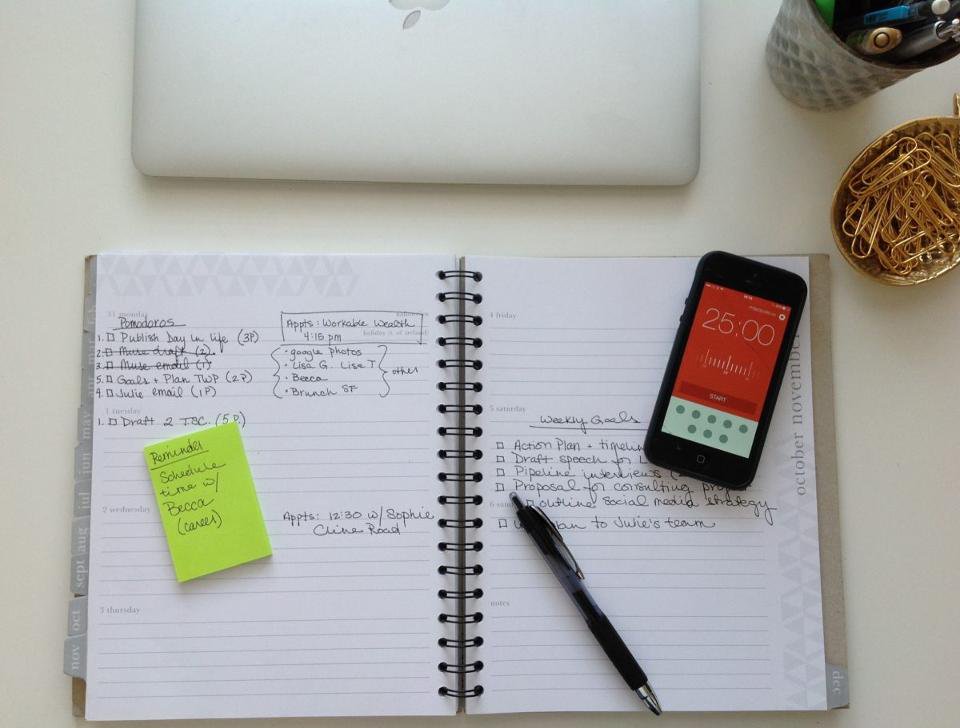 31 monday
Pomodoros
1. Publish Day in life (3P)
2. Muse draft (2)
3. Muse email (1)
5. Goals + Plan TWP (2P)
4. Julie email (1P)
Appts: Workable Wealth
4:15 pm
• google photos
• Lisa G. Lise T
• Becca
• Brunch SF
other
tuesday
1. Draft 2 TSC. (5P)
Reminder
Schedule
time w/
Becca
(career)
2 wednesday
Appts: 12:30 w/ Sophie
Cline Road
3 thursday
4 friday
5 saturday
Weekly Goals
Action Plan +
Draft speech for
Pipeline interviews
Proposal for consulting
outline social media strategy
plan to Julie's team
notes
25:00
START
october november
dec
may
jun
jul
aug
sept
oct
nov